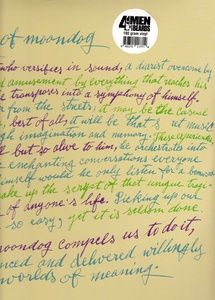 4 MEN
WITH
BEARDS
180 gram vinyl
of moondog
who versifies in sound, a diarist overcome by
amusement by everything that reaches his
he transposes into a symphony of himself.
from the streets, it may be the casual
best of all, it will be that
imagination and memory.
but so alive to him, he orchestrates into
enchanting conversations everyone
himself would he only listen for a
make up the script of that unique
of anyone's life. Picking up our
so easy, yet it is seldom done.
moondog compels us to do it,
and delivered willingly
worlds of meaning.